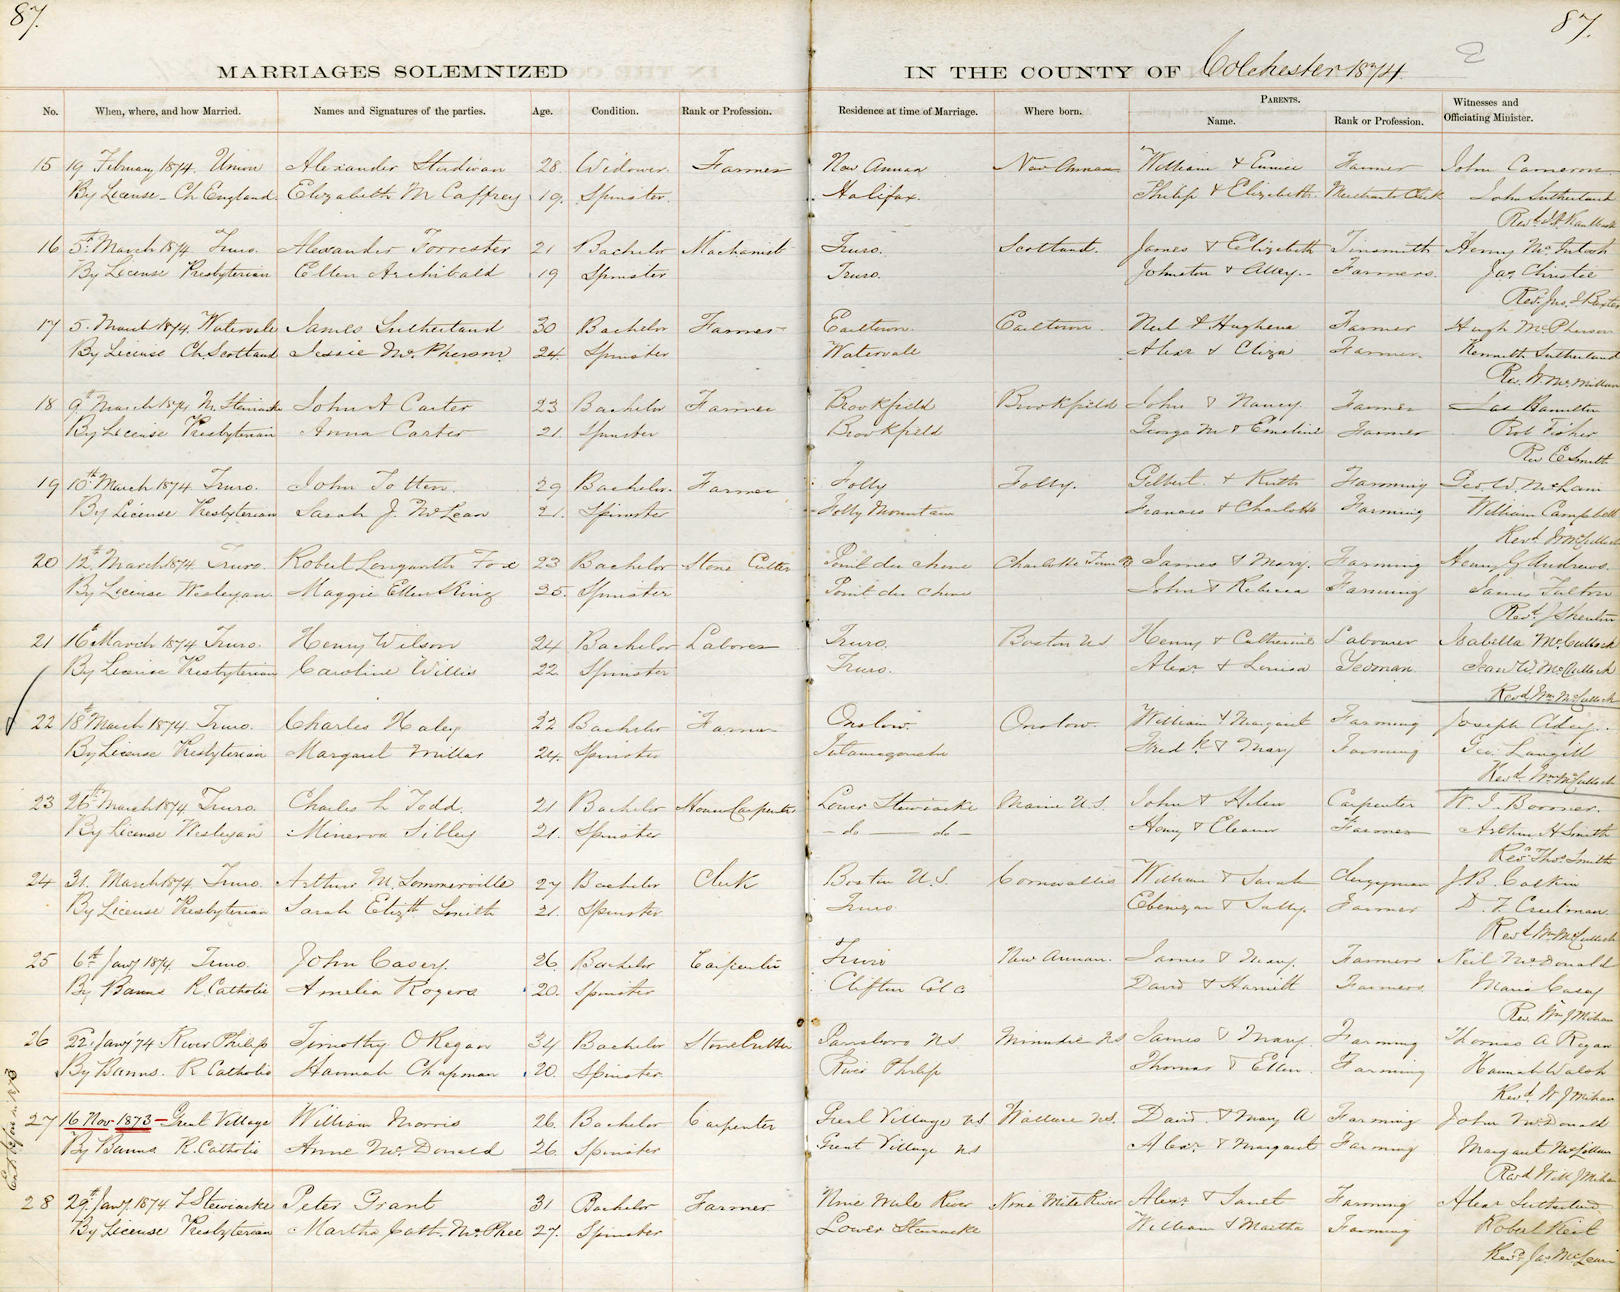 87.
87.
MARRIAGES SOLEMNIZED IN THE COUNTY OF Colchester 1874.
PARENTS.
No. When, where, and how Married. Names and Signatures of the parties. Age. Condition. Rank or Profession. Residence at time of Marriage. Where born. Name. Rank or Profession. Witnesses and Officiating Minister.
15 19 February 1874. Union Alexander Studivan 28. Widower. Farmer New Annan New Annan William & Eunice Farmer John Cameron
By License - Ch England. Elizabeth McCaffrey 19. Spinster. Halifax. Philip & Elizabeth Merchants Clerk John Sutherland
Revd
16 5th March 1874 Truro. Alexander Forrester 21 Bachelor Machanist Truro. Scotland. James & Elizabeth Tinsmith Henry McIntosh
By License Presbyterian Ellen Archibald 19 Spinster Truro. Johnston & Farmers. Jas Christie
Rev. Jas.
17 5. March 1874. Watervale James Sutherland 30 Bachelor Farmer Earltown. Earltown. Neil & Hughena Farmer Hugh McPherson
By License Ch. Scotland Jessie McPherson 24. Spinster Watervale Alexr & Eliza Farmer. Kenneth Sutherland
Rev. W. McMillan
18 9th March 1874 M. Stewiacke John A Carter 23 Bachelor Farmer Brookfield Brookfield John & Nancy Farmer Jas Hamilton
By License Presbyterian Anna Carter 21. Spinster Brookfield George M & Emeline Farmer Rob Fisher
Rev E Smith
19 10th March 1874. Truro. John Totten. 29 Bachelor. Farmer Folly Folly. Gilbert. & Ruth Farming Geo W. McLain
By License Presbyterian Sarah J. McLean 21. Spinster Folly Mountain Francis & Charlotte Farming William Campbell
Revd WmCulloch
20 12th March 1874. Truro. Robert Longworth Fox 23 Bachelor Stone Cutter Point du chene Charlotte Town James & Mary. Farming Henry G Andrews.
By License Wesleyan. Maggie Ellen King 25. Spinster Point du chene John & Rebecca Farming James Fulton
Revd J
21 16th March 1874 Truro. Henry Wilson 24 Bachelor Laborer Truro. Boston US Henry & Catherine Labourer Isabella McCullock
By License Presbyterian Caroline Willis 22. Spinster Truro. Alexr & Louisa Yeoman. Jean W. McCullock
Revd Wm McCullock
22 18th March 1874. Truro. Charles Haley 22 Bachelor Farmer Onslow. Onslow. William & Margaret Farming Joseph
By License Presbyterian Margaret Millar 24. Spinster Tatamagouche Fred K & Mary Farming Geo. Langill
Revd. Wm McCulloch
23 26th March 1874 Truro. Charles L Todd 21 Bachelor House Carpenter Lower Stewiacke Maine U.S. John & Helen Carpenter W. J.
By License Wesleyan Minerva Sibley 21. Spinster - do - do - Henry & Eleanor Farmer Arthur H Smith
Revd Thos. Smith
24 31. March 1874. Truro. Arthur M. Sommerville 27 Bachelor Clerk Boston U.S. Cornwallis William & Sarah Clergyman J. B. Calkin
By License Presbyterian Sarah Elizth Smith 21. Spinster Truro Ebenezar & Sally. Farmer D. F. Creelman
Revd Wm McCulloch
25 6th Jany 1874. Truro. John Casey. 26. Bachelor Carpenter Truro New Annan. James & Mary. Farmers Neil McDonald
By Banns R. Catholic Amelia Rogers 20. Spinster Clifton Col Co David & Harriett Farmers Maria Casey
Rev. Wm J Mihan
26 22. Jany '74 River Philip Timothy O Regan 34 Bachelor Stone Cutter Parrsboro N.S. Minudie NS James & Mary. Farming Thomas A Regan
By Banns. R Catholic Hannah Chapman 20. Spinster. River Philip Thomas & Ellen. Farming Hannah Walsh
Revd. W J Mihan
27 16 Nov 1873 - Great Village William Morris 26. Bachelor Carpenter Great Village NS Wallace NS. David. & Mary A Farming John McDonald
By Banns R. Catholic Anne McDonald 26. Spinster Great Village NS Alexr & Margaret Farming Margaret McLellan
Revd Will J Mihan
28 29th Jany 1874. L Stewiacke Peter Grant 31 Bachelor Farmer Nine Mile River Nine Mile River Alexr & Janet Farming Alexr Sutherland
By License Presbyterian Martha Cath. McPhee 27. Spinster Lower Stewiacke William & Martha Farming Robert
Revd Jas McLean